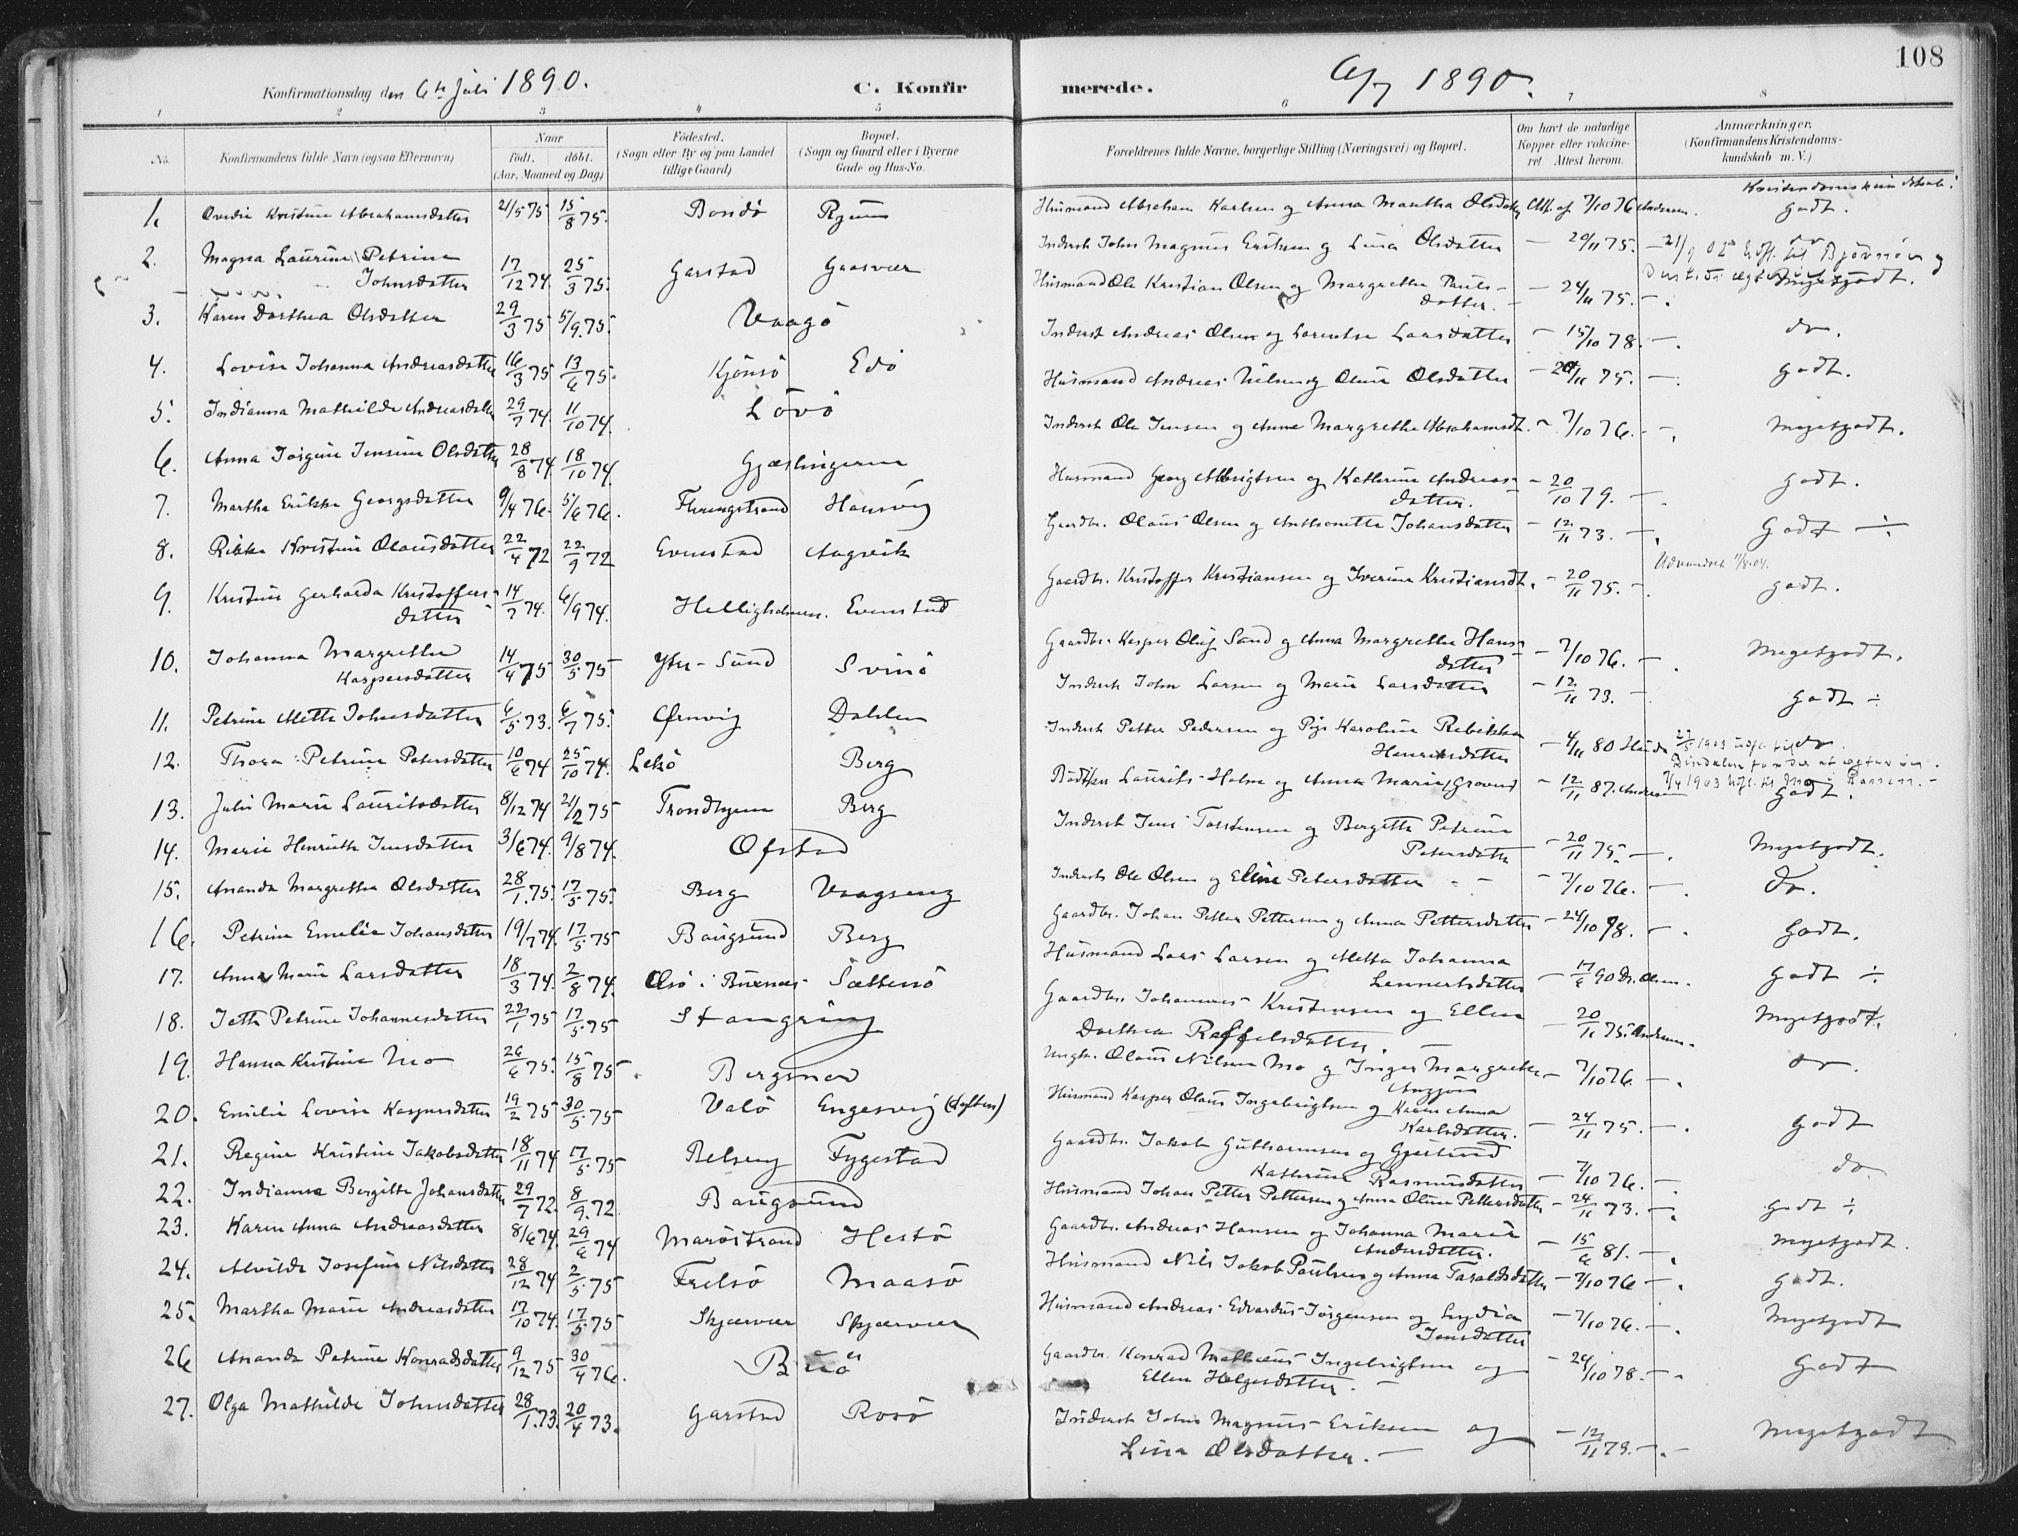 108
Konfirmationsdag den 6te Juli 1890. C. Konfirmerede. 6/7 1890.
1 2 3 4 5 6 7 8
No. Konfirmandens fulde Navn (ogsaa Efternavn) Naar født. døbt. (Aar, Maaned og Dag) Fødested. (Sogn eller By og paa Landet tillige Gaard) Bopæl. (Sogn og Gaard eller i Byerne Gade og Hus-No. Forældrenes fulde Navne, borgerlige Stilling (Næringsvei) og Bopæl. Om havt de naturlige Kopper eller vakcineret Attest herom. Anmærkninger. (Konfirmandens Kristendomskundskab m. V.)
1. Kristine Abrahamsdatter 21/5 75 15/8 75. Bondø Husmand Abraham Karlsen og Anna Martha Olsdatter Att. af 7/10 76 Andersen. Godt.
2. Magna Laurine Petrine Johnsdatter 17/12 74. 25/3 75. Garstad Gaasvær Inderst John Magnus Eriksen og Lina Olsdatter — 20/11 75. —
3. Karen Dorthea Olsdatter 29/3 75 5/9. 75. Vaagø Husmand Ole Kristian Olsen og Margrethe Paulsdatter. — 24/11 75. — Megetgodt.
4. Lovise Johanna Andreasdatter 16/3 75 13/6 75. Kjønsø Edø Inderst Andreas Olsen og Lorentse Larsdatter — 15/10 78. — do.
5. Indianna Mathilde Andreasdatter 29/7 74. 11/10 74. Løvø Husmand Andreas Nilsen og Oline Olsdatter — 20/11 75. — godt.
6. Anna Jørgine Jensine Olsdatter 28/8 74. 18/10 74. Gjæslingerne Inderst Ole Jensen og Anne Margrethe Abrahamsdt. — 7/10 76. — Megetgodt.
7. Martha Erikke Georgsdatter 9/4 76. 5/6 76. Husmand Georg Albrigtsen og Kathrine Andreasdatter. — 20/10 79. — godt.
8. Rikke Kristine Olausdatter 22/4 72 22/9 72 Evenstad Aagvik Gaardbr. Olaus Olsen og Anthonette Johansdatter — 12/11 73. — Godt ÷
9. Kristine Gerharda Kristoffersdatter 14/7 74. 6/9 74. Helligholmen. Evenstad Gaardbr. Kristoffer Kristiansen og Iverine Kristiansdt. — 20/11 75. — godt.
10. Johanna Margrethe Kaspersdatter 14/4 75 30/5 75 Ytre-Sund Svinø Gaardbr. Kasper Oluf Sund og Anna Margrethe Hansdatter — 7/10 76. — Megetgodt.
11. Petrine Mette Johnsdatter 6/5. 73. 6/7 75. Ørnvig Dahlen Inderst John Larsen og Marie Larsdatter — 12/11 73. — godt ÷
12. Thora Petrine Petersdatter 10/6 74 25/10 74. Lekø Berg Inderst Petter Pedersen og Pige Karoline Rebekka Henriksdatter — 4/11 80 do.
13. Julie Marie Lauritsdatter 8/12 74 21/2 75 Trondhjem Berg Laurits Holm og Anna Marie — 12/11 87. Andersen godt.
14. Marie Henriette Jensdatter 3/6 74. 9/8 74. Ofstad Inderst Jens Torstensen og Bergitte Petrine Petersdatter — 20/11 75. — Megetgodt.
15. Ananda Margrethe Olsdatter 28/1. 75. 17/5. 75. Berg Vaagseng Inderst Ole Olsen og Eline Petersdatter — 7/10 76. — Do.
16. Petrine Emelie Johansdatter 19/7 74. 17/5. 75 Baugsund Berg Gaardbr. Johan Petter Pettersen og Anna Pettersdatter — 24/10 78. — Godt.
17. Anne Marie Larsdatter 18/3 74. 2/8 74. Sættersø Husmand Lars Larsen og Metta Johanna Lennertsdatter — 17/6 90 Dr. Olsen. Godt ÷
18. Jette Petrine Johannesdatter 22/1 75 17/5. 75 Stangring Gaardbr. Johannes Kristensen og Ellen Dorthea Raffelsdatter. — 20/11 75. Andersen. Megetgodt.
19. Hanna Kristine Mo 26/6 75. 15/8 75. Bergsnev Ungk. Olaus Nilsen Mo og Inger Margrethe — 7/10 76. — do.
20. Emilie Lovise Kaspersdatter 19/2 75 30/5. 75 Valø Engesvig Husmand Kasper Olaus Ingebrigtsen og Karen Anna Karlsdatter. — 24/11 75. — Godt
21. Regine Kristine Jakobsdatter 18/11 74 17/5. 75 Belseng Fygestad Gaardbr. Jakob Guthormsen og Gjertrud Kathrine Rasmusdatter — 7/10 76. — do
22. Indianna Bergitte Johansdatter 29/7 72. 8/9. 72. Baugsund Husmand Johan Petter Pettersen og Anna Oline Pettersdatter — 24/11 73. — godt ÷
23. Karen Anna Andreasdatter 8/6 74. 29/6 74 Marøstrand Hestø Gaardbr. Andreas Hansen og Johanna Marie Andersdatter. — 15/6 81. — Megetgodt.
24. Alvilde Josefine Nilsdatter 28/12 74 2/5. 75 Frelsø Maasø Husmand Nils Jakob Paulsen og Anna Taraldsdatter — 7/10 76 — Godt.
25. Martha Marie Andreasdatter 17/10 74. 17/5. 75 Skjærvær Skjærvær Husmand Andreas Edvardus Jørgensen og Lydia Jensdatter — 7/10 76. — Megetgodt
26 Ananda Petrine Konradsdatter 9/12 75 30/4 76. Buø Gaardbr. Konrad Mathæus Ingebrigtsen og Ellen Helgesdatter. — — 24/10 78. — Godt
27. Olga Mathilde Johnsdatter 28/1. 73. 20/4 73. Garstad Rosø Inderst John Magnus Eriksen og Lina Olsdatter. — — 12/11 73. — Megetgodt